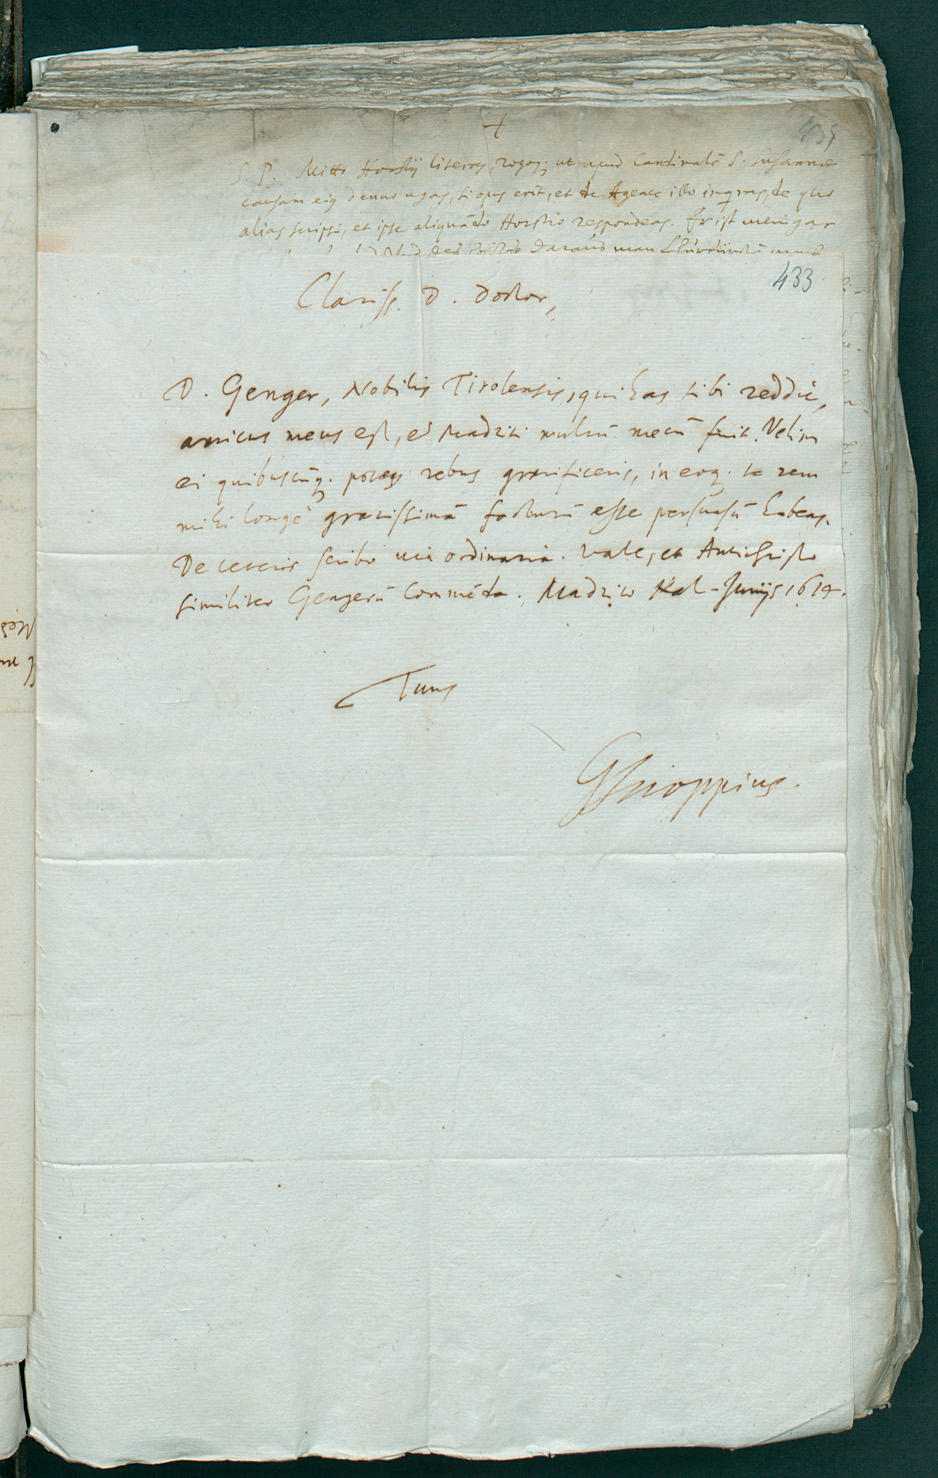 435
S. P. Mitto Horstij literas, rogoq; ut apud Cardinalē S. Susannæ
causam eiq denuo agas, si opus erit, et de Agente illo inquiras, de quo
alias scripsi, et ipse aliquādo Horstio respondeas. Er ist
433
Clariss. D. Doctor,
D. Genger, Nobilis Tirolensis, qui has tibi reddit,
amicus meus est, et Madriti multū mecū fuit. Velim
ei quibuscūq. potes rebus gratificeris, in eoq. te rem
mihi longè gratissimā facturū esse persuasū habeas.
De ceteris scribo via ordinaria. Vale, et
similiter Gengerū commēda. Madrito Kal. Junijs 1614.
Tuus
GScioppius.